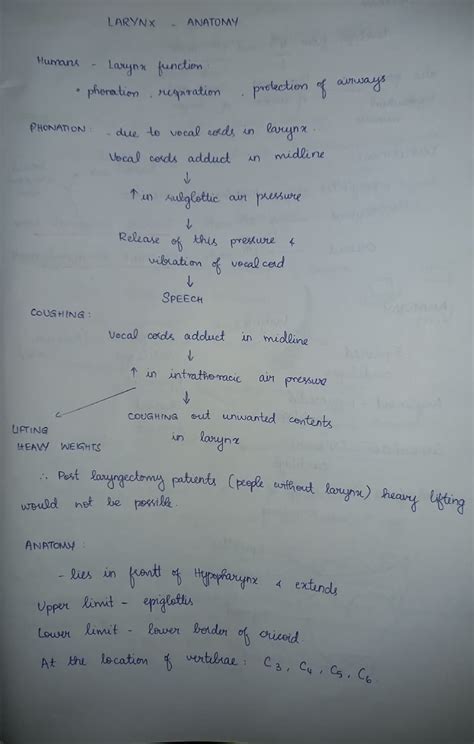 LARYNX - ANATOMY
Humans - Larynx function:
• phonation, respiration, protection of airways
PHONATION: - due to vocal cords in larynx.
Vocal cords adduct in midline
↓
↑ in subglottic air pressure
↓
Release of this pressure &
vibration of vocal cord
↓
SPEECH
COUGHING:
Vocal cords adduct in midline
↓
↑ in intrathoracic air pressure
↓
COUGHING out unwanted contents
in larynx
LIFTING
HEAVY WEIGHTS
∴ Post laryngectomy patients (people without larynx) heavy lifting
would not be possible.
ANATOMY:
- lies in front of Hypopharynx & extends
Upper limit - epiglottis
Lower limit - lower border of cricoid
At the location of vertebrae: C3, C4, C5, C6